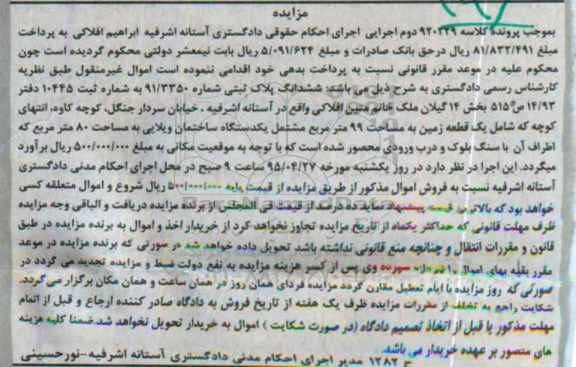 مزایده
بموجب پرونده کلاسه ۹۲۰۲۲۹ دوم اجرایی اجرای احکام حقوقی دادگستری آستانه اشرفیه ابراهیم افلاکی به پرداخت
مبلغ ۸۱/۸۳۲/۴۹۱ ریال درحق بانک صادرات و مبلغ ۵/۰۹۱/۶۲۴ ریال بابت نیمعشر دولتی محکوم گردیده است چون
محکوم علیه در موعد مقرر قانونی نسبت به پرداخت بدهی خود اقدامی ننموده است اموال غیرمنقول طبق نظریه
کارشناس رسمی دادگستری به شرح ذیل می باشد: ششدانگ پلاک ثبتی شماره ۹۱/۳۳۵۰ به شماره ثبت ۱۰۴۴۵ دفتر
۱۴/۹۳ ص ۵۱۵ بخش ۱۴ گیلان ملک خانم متین افلاکی واقع در آستانه اشرفیه ، خیابان سردار جنگل، کوچه کاوه، انتهای
کوچه که شامل یک قطعه زمین به مساحت ۹۹ متر مربع مشتمل یکدستگاه ساختمان ویلایی به مساحت ۸۰ متر مربع که
اطراف آن با سنگ بلوک و درب ورودی محصور شده است که با توجه به موقعیت مکانی به مبلغ ۵۰۰/۰۰۰/۰۰۰ ریال برآورد
میگردد. این اجرا در نظر دارد در روز یکشنبه مورخه ۹۵/۰۴/۲۷ ساعت ۹ صبح در محل اجرای احکام مدنی دادگستری
آستانه اشرفیه نسبت به فروش اموال مذکور از طریق مزایده از قیمت پایه ۵۰۰/۰۰۰/۰۰۰ ریال شروع و اموال متعلقه کسی
خواهد بود که بالاترین قیمت پیشنهاد نماید ده درصد از قیمت فی المجلس از برنده مزایده دریافت و الباقی وجه مزایده
ظرف مهلت قانونی که حداکثر یکماه از تاریخ مزایده تجاوز نخواهد کرد از خریدار اخذ و اموال به برنده مزایده در طبق
قانون و مقررات انتقال و چنانچه منع قانونی نداشته باشد تحویل داده خواهد شد در صورتی که برنده مزایده در موعد
مقرر بقیه بهای اموال را نپردازد سپرده وی پس از کسر هزینه مزایده به نفع دولت ضبط و مزایده تجدید می گردد در
صورتی که روز مزایده با ایام تعطیل مقارن گردد مزایده فردای همان روز در همان ساعت و همان مکان برگزار می گردد.
شکایت راجع به تخلف از مقررات مزایده ظرف یک هفته از تاریخ فروش به دادگاه صادر کننده ارجاع و قبل از اتمام
مهلت مذکور یا قبل از اتخاذ تصمیم دادگاه (در صورت شکایت ) اموال به خریدار تحویل نخواهد شد.ضمنا کلیه هزینه
های متصور بر عهده خریدار می باشد.
ح ۱۲۸۲ مدیر اجرای احکام مدنی دادگستری آستانه اشرفیه-نورحسینی